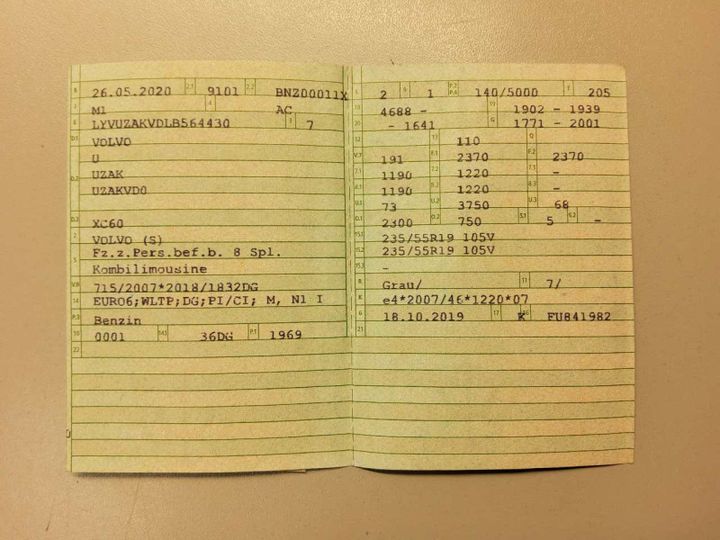 B 26.05.2020 2.1 9101 2.2 BNZ00011X
J M1 4 AC
E LYVUZAKVDLB564430 3 7
D.1 VOLVO
U
D.2 UZAK
UZAKVD0
D.3 XC60
2 VOLVO (S)
5 Fz.z.Pers.bef.b. 8 Spl.
Kombilimousine
V.9 715/2007*2018/1832DG
14 EURO6;WLTP;DG;PI/CI; M, N1 I
P.3 Benzin
10 0001 14.1 36DG P.1 1969
22
L 2 9 1 P.2 P.4 140/5000 T 205
18 4688 - 19 1902 - 1939
20 - 1641 G 1771 - 2001
12 13 110 Q
V.7 191 F.1 2370 F.2 2370
7.1 1190 7.2 1220 7.3 -
8.1 1190 8.2 1220 8.3 -
U.1 73 U.2 3750 U.3 68
O.1 2300 O.2 750 S.1 5 S.2 -
15.1 235/55R19 105V
15.2 235/55R19 105V
15.3 -
R Grau/ 11 7/
K e4*2007/46*1220*07
6 18.10.2019 17 K 16 FU841982
21